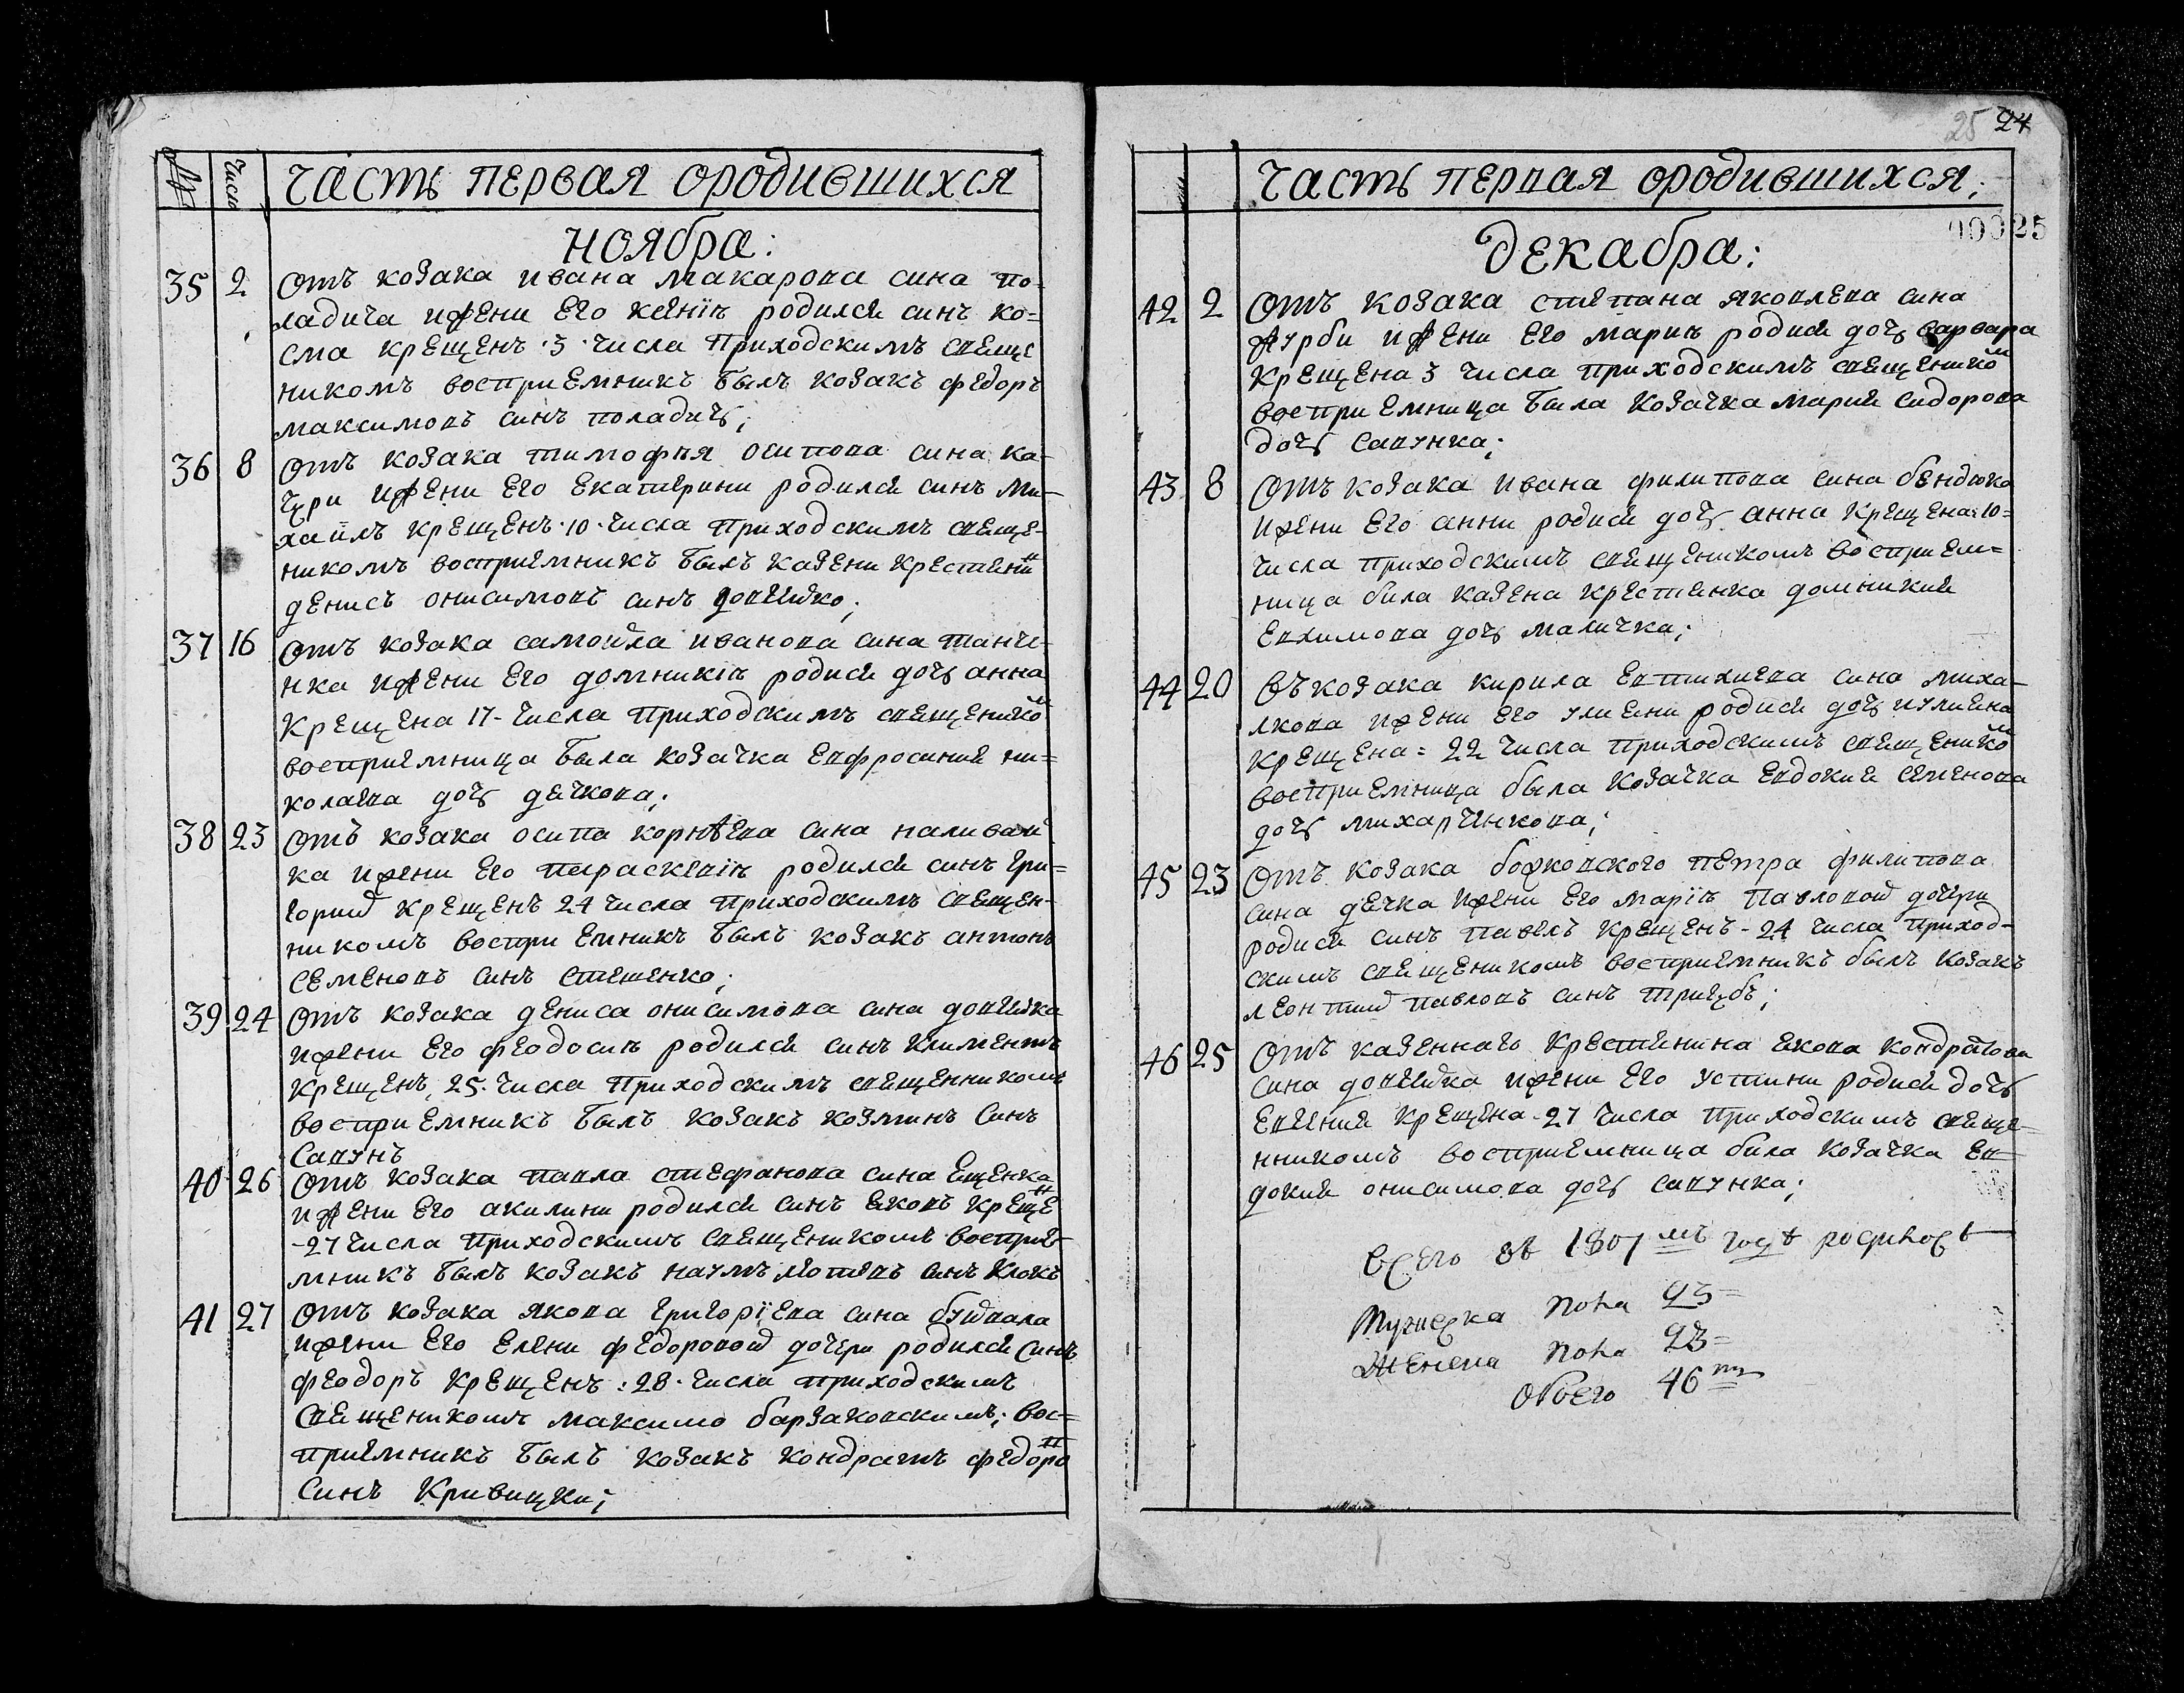 № Число Часть первая ородившихся
Ноября:
35 2 Отъ козака ивана макарова сина по-
ладича ижени его ксенїи родился синъ ко=
сма крещенъ 3 числа приходскимъ свяще
никомъ восприемникъ былъ козакъ федоръ
максимовъ синъ поладичъ;
36 8 Отъ козака тимофѣя осипова сина ка-
чури ижени его екатерини родился синъ ми-
хаилъ крещенъ 10 числа приходскимъ свяще-
никомъ восприемникъ былъ казени крестянинъ
денисъ онисимовъ синъ довгийко;
37 16 Отъ козака самоила иванова сина танче-
нка ижени его домникїи родися дочъ анна
крещена 17 числа приходскимъ священиком
восприемница была козачка евфросиния ни=
колаева дочъ дячкова;
38 23 Отъ козака осипа корнѣева сина наливай
ка ижени его параскевїи родился синъ гри-
горий крещенъ 24 числа приходскимъ священ-
никомъ восприемникъ былъ козакъ антонъ
семеновъ синъ стешенко;
39 24 Отъ козака дениса онисимова сина довгийка
ижени его феодосии родился синъ климентъ
крещенъ 25 числа приходскимъ священникомъ
восприемникъ былъ козакъ козминъ синъ
савунъ
40 26 Отъ козака павла стефанова сина ещенка
ижени его акилини родился синъ яковъ крещен
-27 числа приходскимъ священикомъ восприе-
мникъ былъ козакъ наумъ синъ клокъ
41 27 Отъ козака якова григорїева сина буйвала
ижени его елени федоровой дочери родился синъ
феодоръ крещенъ 28 числа приходскимъ
священикомъ максимо барзаковскимъ; вос=
приемникъ былъ козакъ кондратъ федоров
синъ кривицки;
25 24
Часть первая ородившихся;
00025
Декабра:
42 2 Отъ козака степана яковлева сина
журби ижени его марии родися дочъ варвара
крещена 3 числа приходскимъ священиком
восприемница была козачка мария сидорова
дочъ савунка;
43 8 Отъ козака ивана филипова сина бендюка
ижени его анни родися дочъ анна крещена 10=
числа приходскимъ священикомъ восприем=
ница била казена крестянка домникия
евхимова дочъ маличка;
44 20 Въ козака кирила евтихиева сина миха-
лкова ижени его улияни родися дочъ иулияна
крещена = 22 числа приходскимъ священиком
восприемница была козачка евдокия семенова
дочъ михарчинкова;
45 23 Отъ козака божковского петра филипова
сина дечка ижени его марїи павловой дочери
родися синъ павелъ крещенъ - 24 числа приход-
скимъ священикомъ восприемникъ былъ козакъ
леонтий павловъ синъ тригубъ;
46 25 Отъ казеннаго крестянина якова кондратова
сина довгийка ижени его устини родися дочъ
евгения крещена 27 числа приходскимъ свяще-
нникомъ восприемница била козачка ев-
докия онисимова дочъ савунка;
Всего въ 1807мъ годѣ родилось
Мужеска пола 23=
Женска пола 23=
Обоего 46